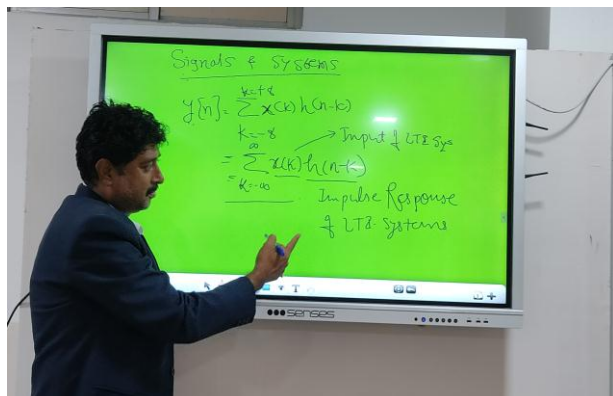 Signals & Systems
k=+8
y[n] = Σ x(k) h(n-k)
k=-8
→ Input of LTI Sys
∞
= Σ x(k) h(n-k)
k=-∞
Impulse Response
of LTI-Systems
T
senses